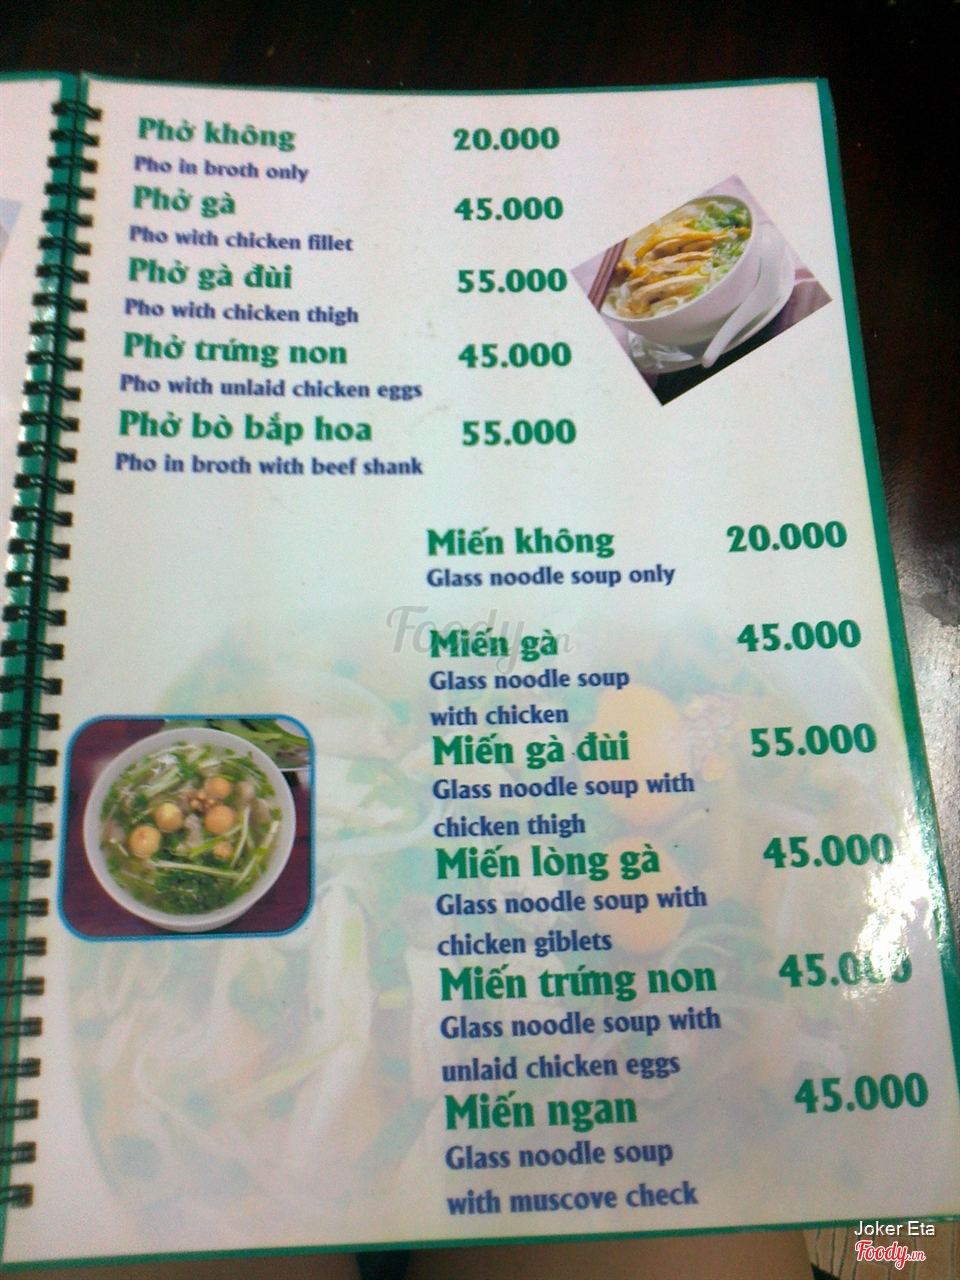 Phở không 20.000
Pho in broth only
Phở gà 45.000
Pho with chicken fillet
Phở gà đùi 55.000
Pho with chicken thigh
Phở trứng non 45.000
Pho with unlaid chicken eggs
Phở bò bắp hoa 55.000
Pho in broth with beef shank
Miến không 20.000
Glass noodle soup only
Foody.vn
Miến gà 45.000
Glass noodle soup
with chicken
Miến gà đùi 55.000
Glass noodle soup with
chicken thigh
Miến lòng gà 45.000
Glass noodle soup with
chicken giblets
Miến trứng non 45.000
Glass noodle soup with
unlaid chicken eggs
Miến ngan 45.000
Glass noodle soup
with muscove check
Joker Eta
Foody.vn